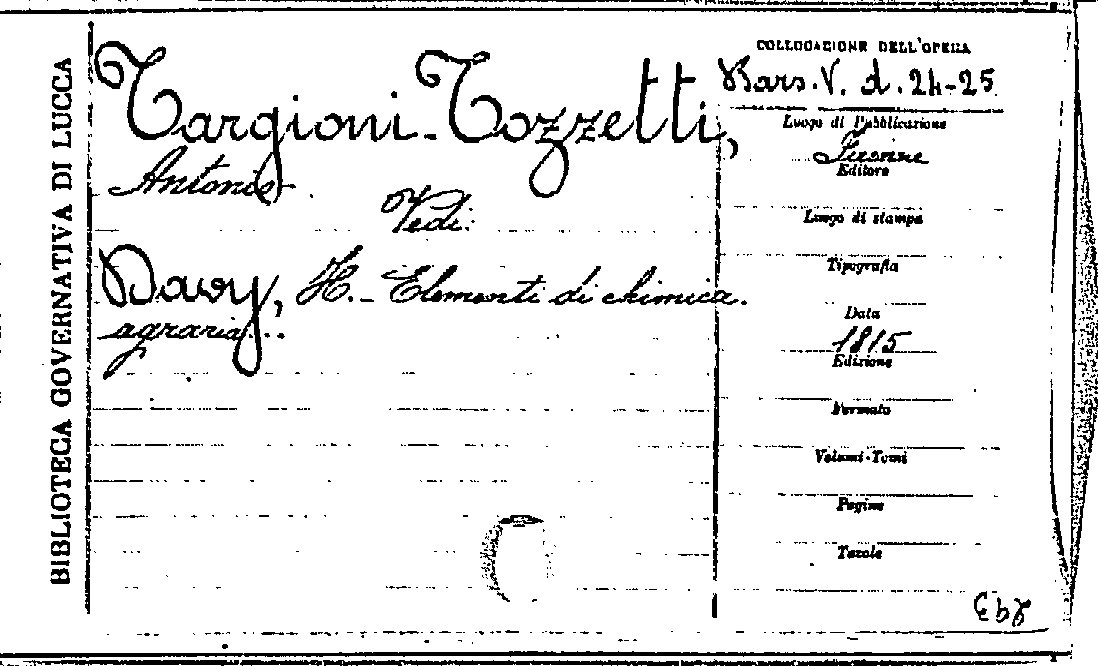 BIBLIOTECA GOVERNATIVA DI LUCCA
Targioni-Tozzetti,
Antonio.
Vedi:
Davy, H. - Elementi di chimica
agraria...
COLLOCAZIONE DELL'OPERA
Bars. V. d. 24-25
Luogo di Pubblicazione
Firenze
Editore
Luogo di stampa
Tipografia
Data
1815
Edizione
Formato
Volumi-Tomi
Pagine
Tavole